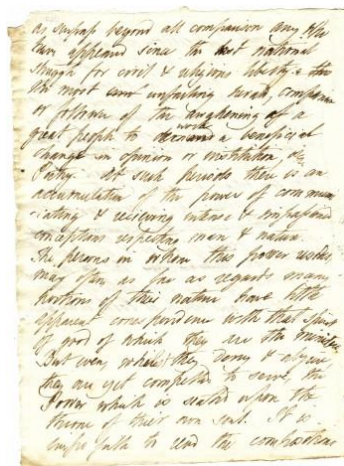 as surpass beyond all comparison any who
have appeared since the last national
struggle for civil & religious liberty. the
the most unfailing herald, companion
or follower of the awakening of a
great people to work a beneficial
change in opinion or institution, is
Poetry. At such periods there is an
accumulation of the power of commun
icating & receiving intense & impassioned
conceptions respecting man & nature.
The persons in whom this power resides,
may often, as far as regards many
portions of their nature have little
apparent correspondence with that spirit
of good of which they are the ministers.
But even whilst they deny & abjure,
they are yet compelled to serve, the
Power which is seated upon the
throne of their own soul. It is
impossible to read the compositions